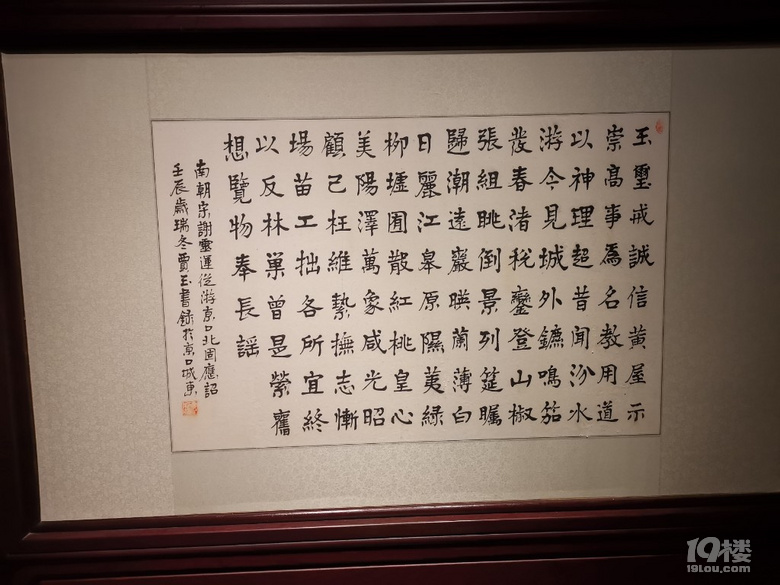 玉璽戒誠信黃屋示
崇高事為名教用道
以神理超昔聞汾水
游今見城外鑣鳴笳
發春渚稅鑾登山椒
張組眺倒景列筵矚
歸潮遠巖暎蘭薄白
日麗江皋原隰荑綠
柳墟囿散紅桃皇心
美陽澤萬象咸光昭
顧己枉維縶撫志慚
場苗工拙各所宜終
以反林巢曾是縈舊
想覽物奉長謠
南朝宋謝靈運從游京口北固應詔
壬辰歲瑞冬賈玉書錄於京口城東
19楼
19lou.com